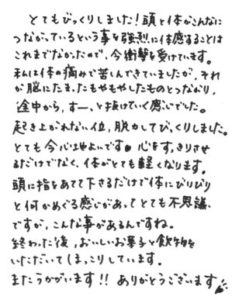 とてもびっくりしました!頭と体がこんなに
つながっているという事を強烈に体感することは
これまでなかったので、今衝撃を受けています。
私は体の痛みで苦しんできていましたが、それ
が脳にたまったもやもやしたものとつながり、
途中から、すーっと抜けていく感じでした。
起き上がれない位、脱力してびっくりしました。
とても今心はやよいです。心をすっきりさせ
るだけでなく、体がとても軽くなります。
頭に指をあてて下さるだけで体にびりびり
と何かめぐる感じがあって、とても不思議
ですが、こんな事があるんですね。
終わった後、おいしいお菓子と飲物を
いただいてほっこりしています。
またうかがいます!!ありがとうございます